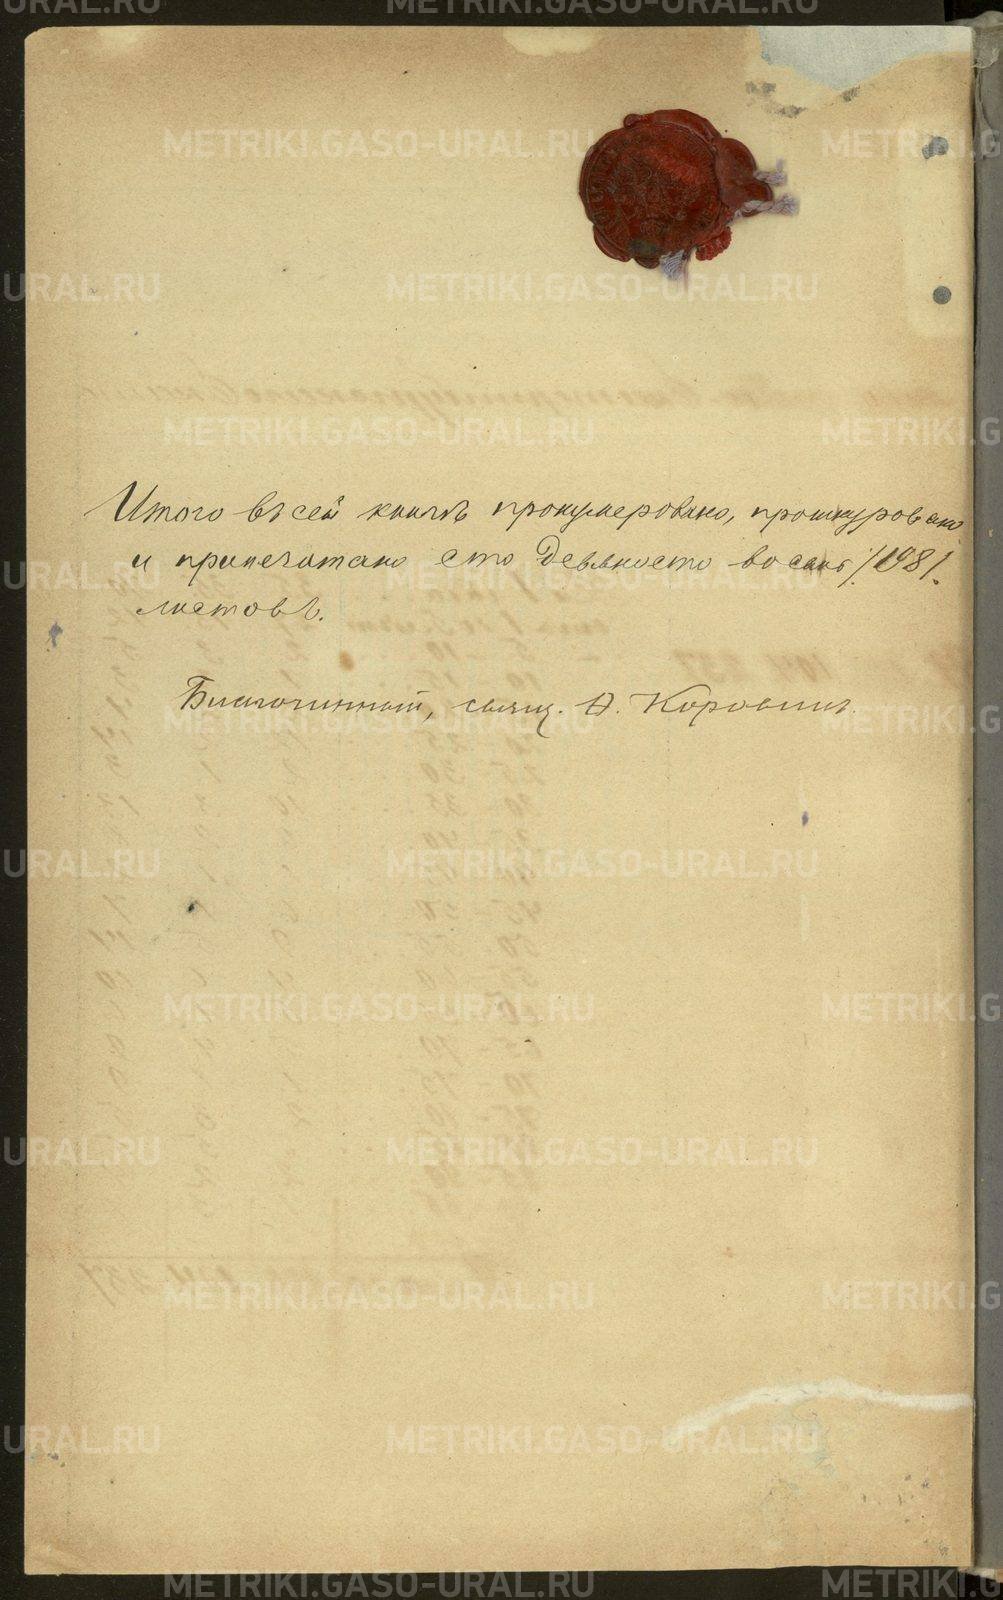 Итого въ сей книгѣ пронумеровано, прошнуровано
и припечатано сто девяносто восемь /198/.
листовъ.
Благочинный, свящ. А. Коровинъ.
METRIKI.GASO-URAL.RU